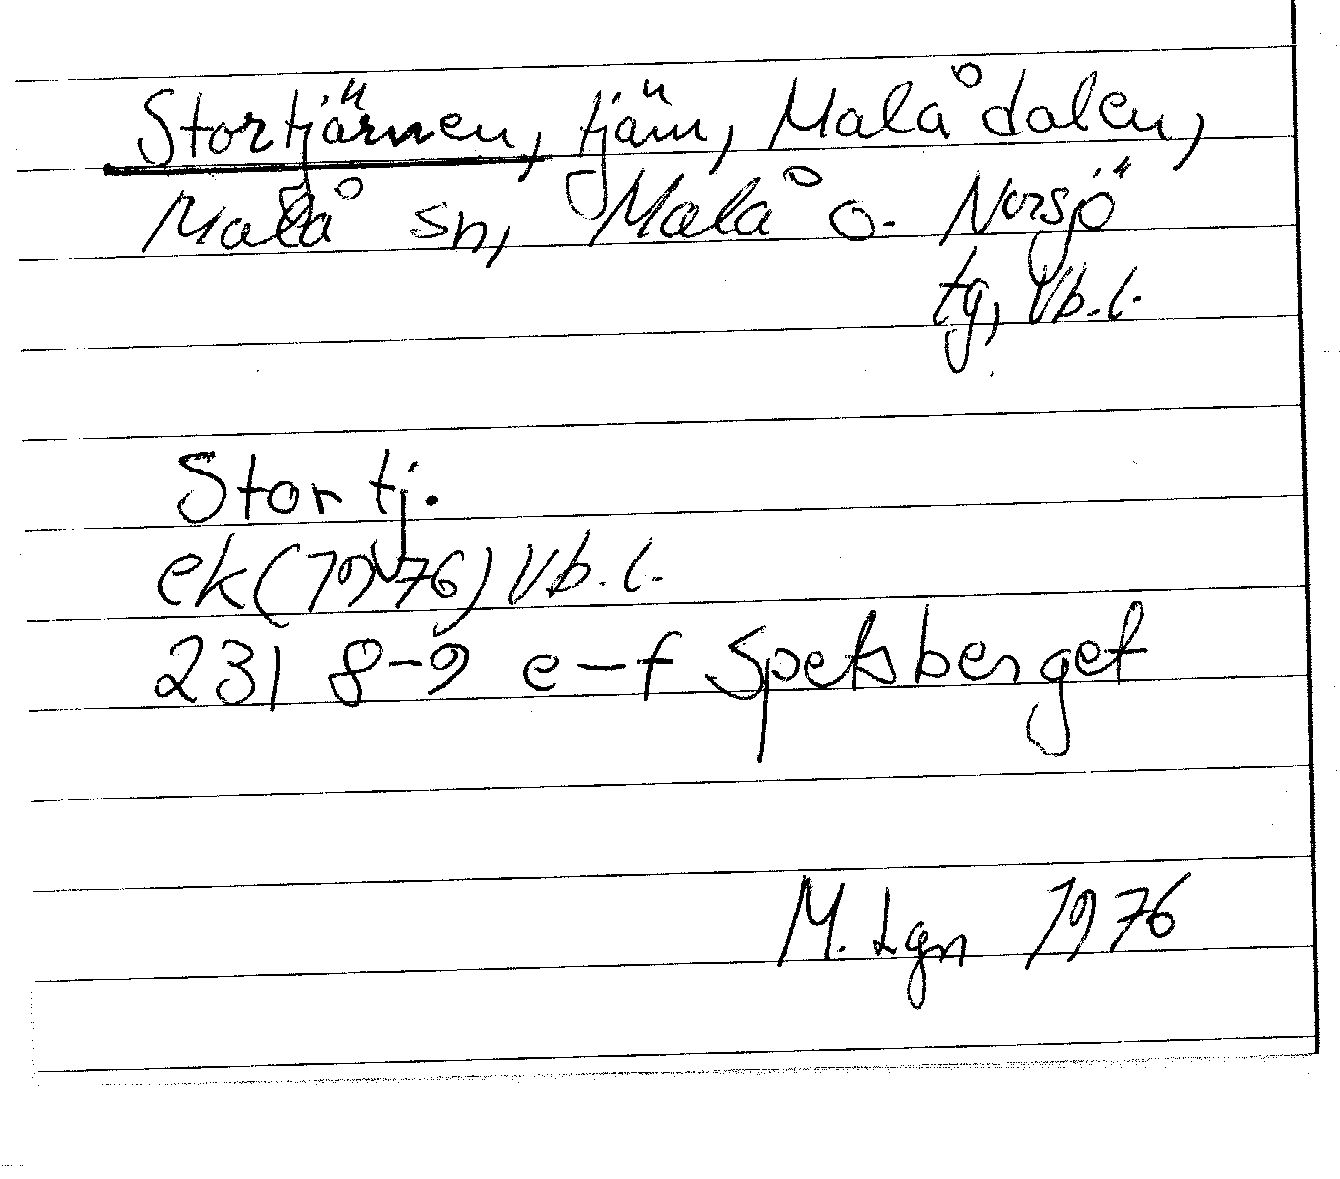 Stortjärnen, tjärn, Malådalen,
Malå sn, Malå o. Norsjö
tg, Vb.l.
Stortj.
ek (1976) Vb.l.
231 8-9 e-f Spetsberget
M. Lgn 1976